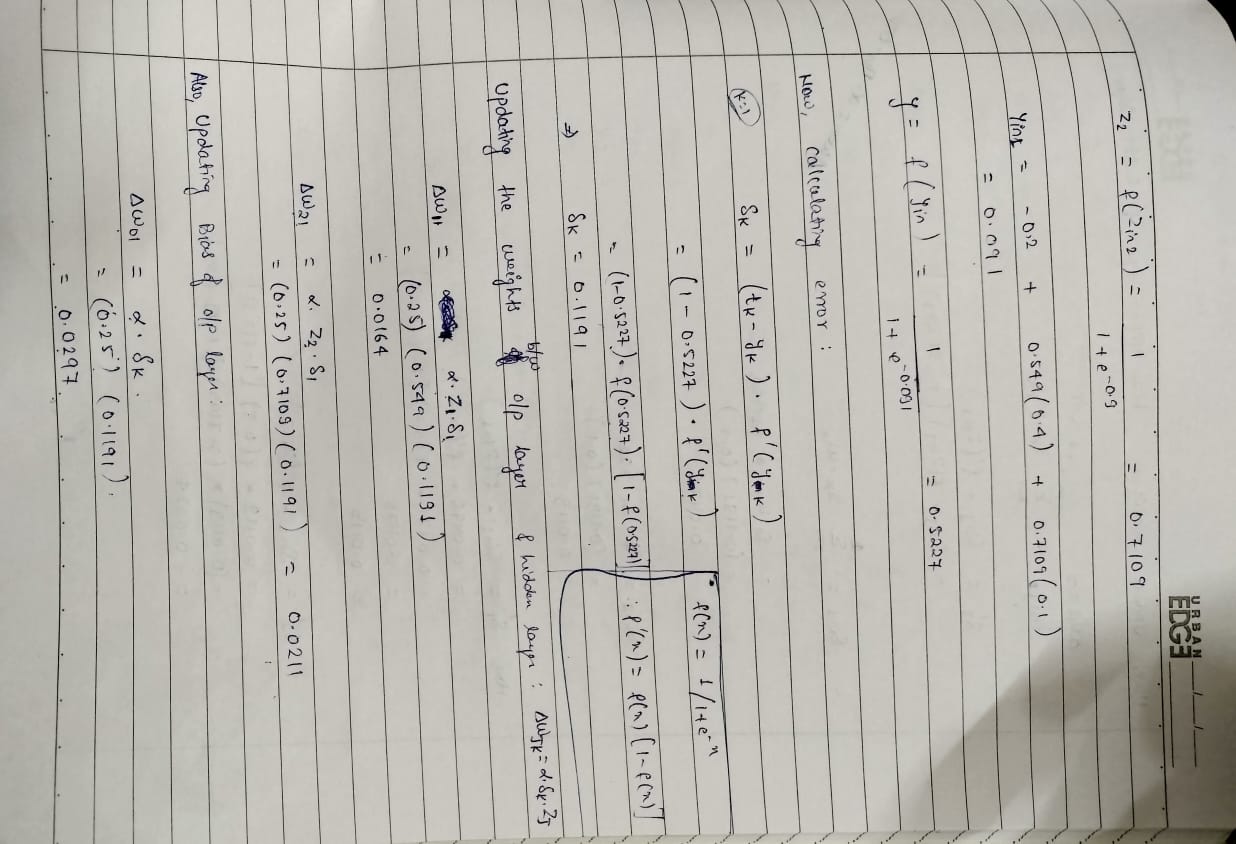 URBAN EDGE
Z₂ = f(Zin2) = 1 / 1 + e^-0.9 = 0.7109
Yin1 = -0.2 + 0.549(0.4) + 0.7109(0.1)
= 0.091
y = f(yin) = 1 / 1 + e^-0.091 = 0.5227
Now, calculating error :
K=1 δK = (tK - yK) . f'(yinK)
= (1 - 0.5227) . f'(yinK) • f(n) = 1/1+e^-n
= (1-0.5227) . f(0.5227) . [1-f(0.5227)] : f'(n) = f(n)[1-f(n)]
⇒ δK = 0.1191
Updating the weights b/w o/p layer & hidden layer : ΔWJK = α.δK.ZJ
ΔW11 = α.Z1.δ1
= (0.25) (0.549) (0.1191)
= 0.0164
ΔW21 = α. Z2. δ1
= (0.25) (0.7109) (0.1191) = 0.0211
Also, Updating Bias of o/p layer :
ΔW01 = α. δK.
= (0.25) (0.1191).
= 0.0297